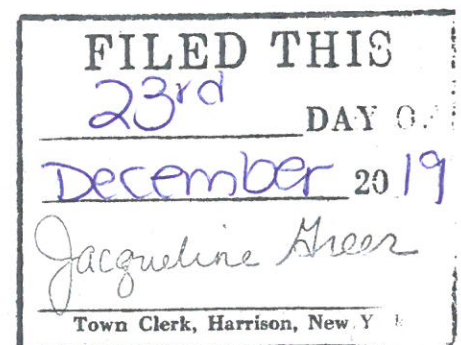 FILED THIS
23rd DAY O
December 2019
Jacqueline Greer
Town Clerk, Harrison, New Y k